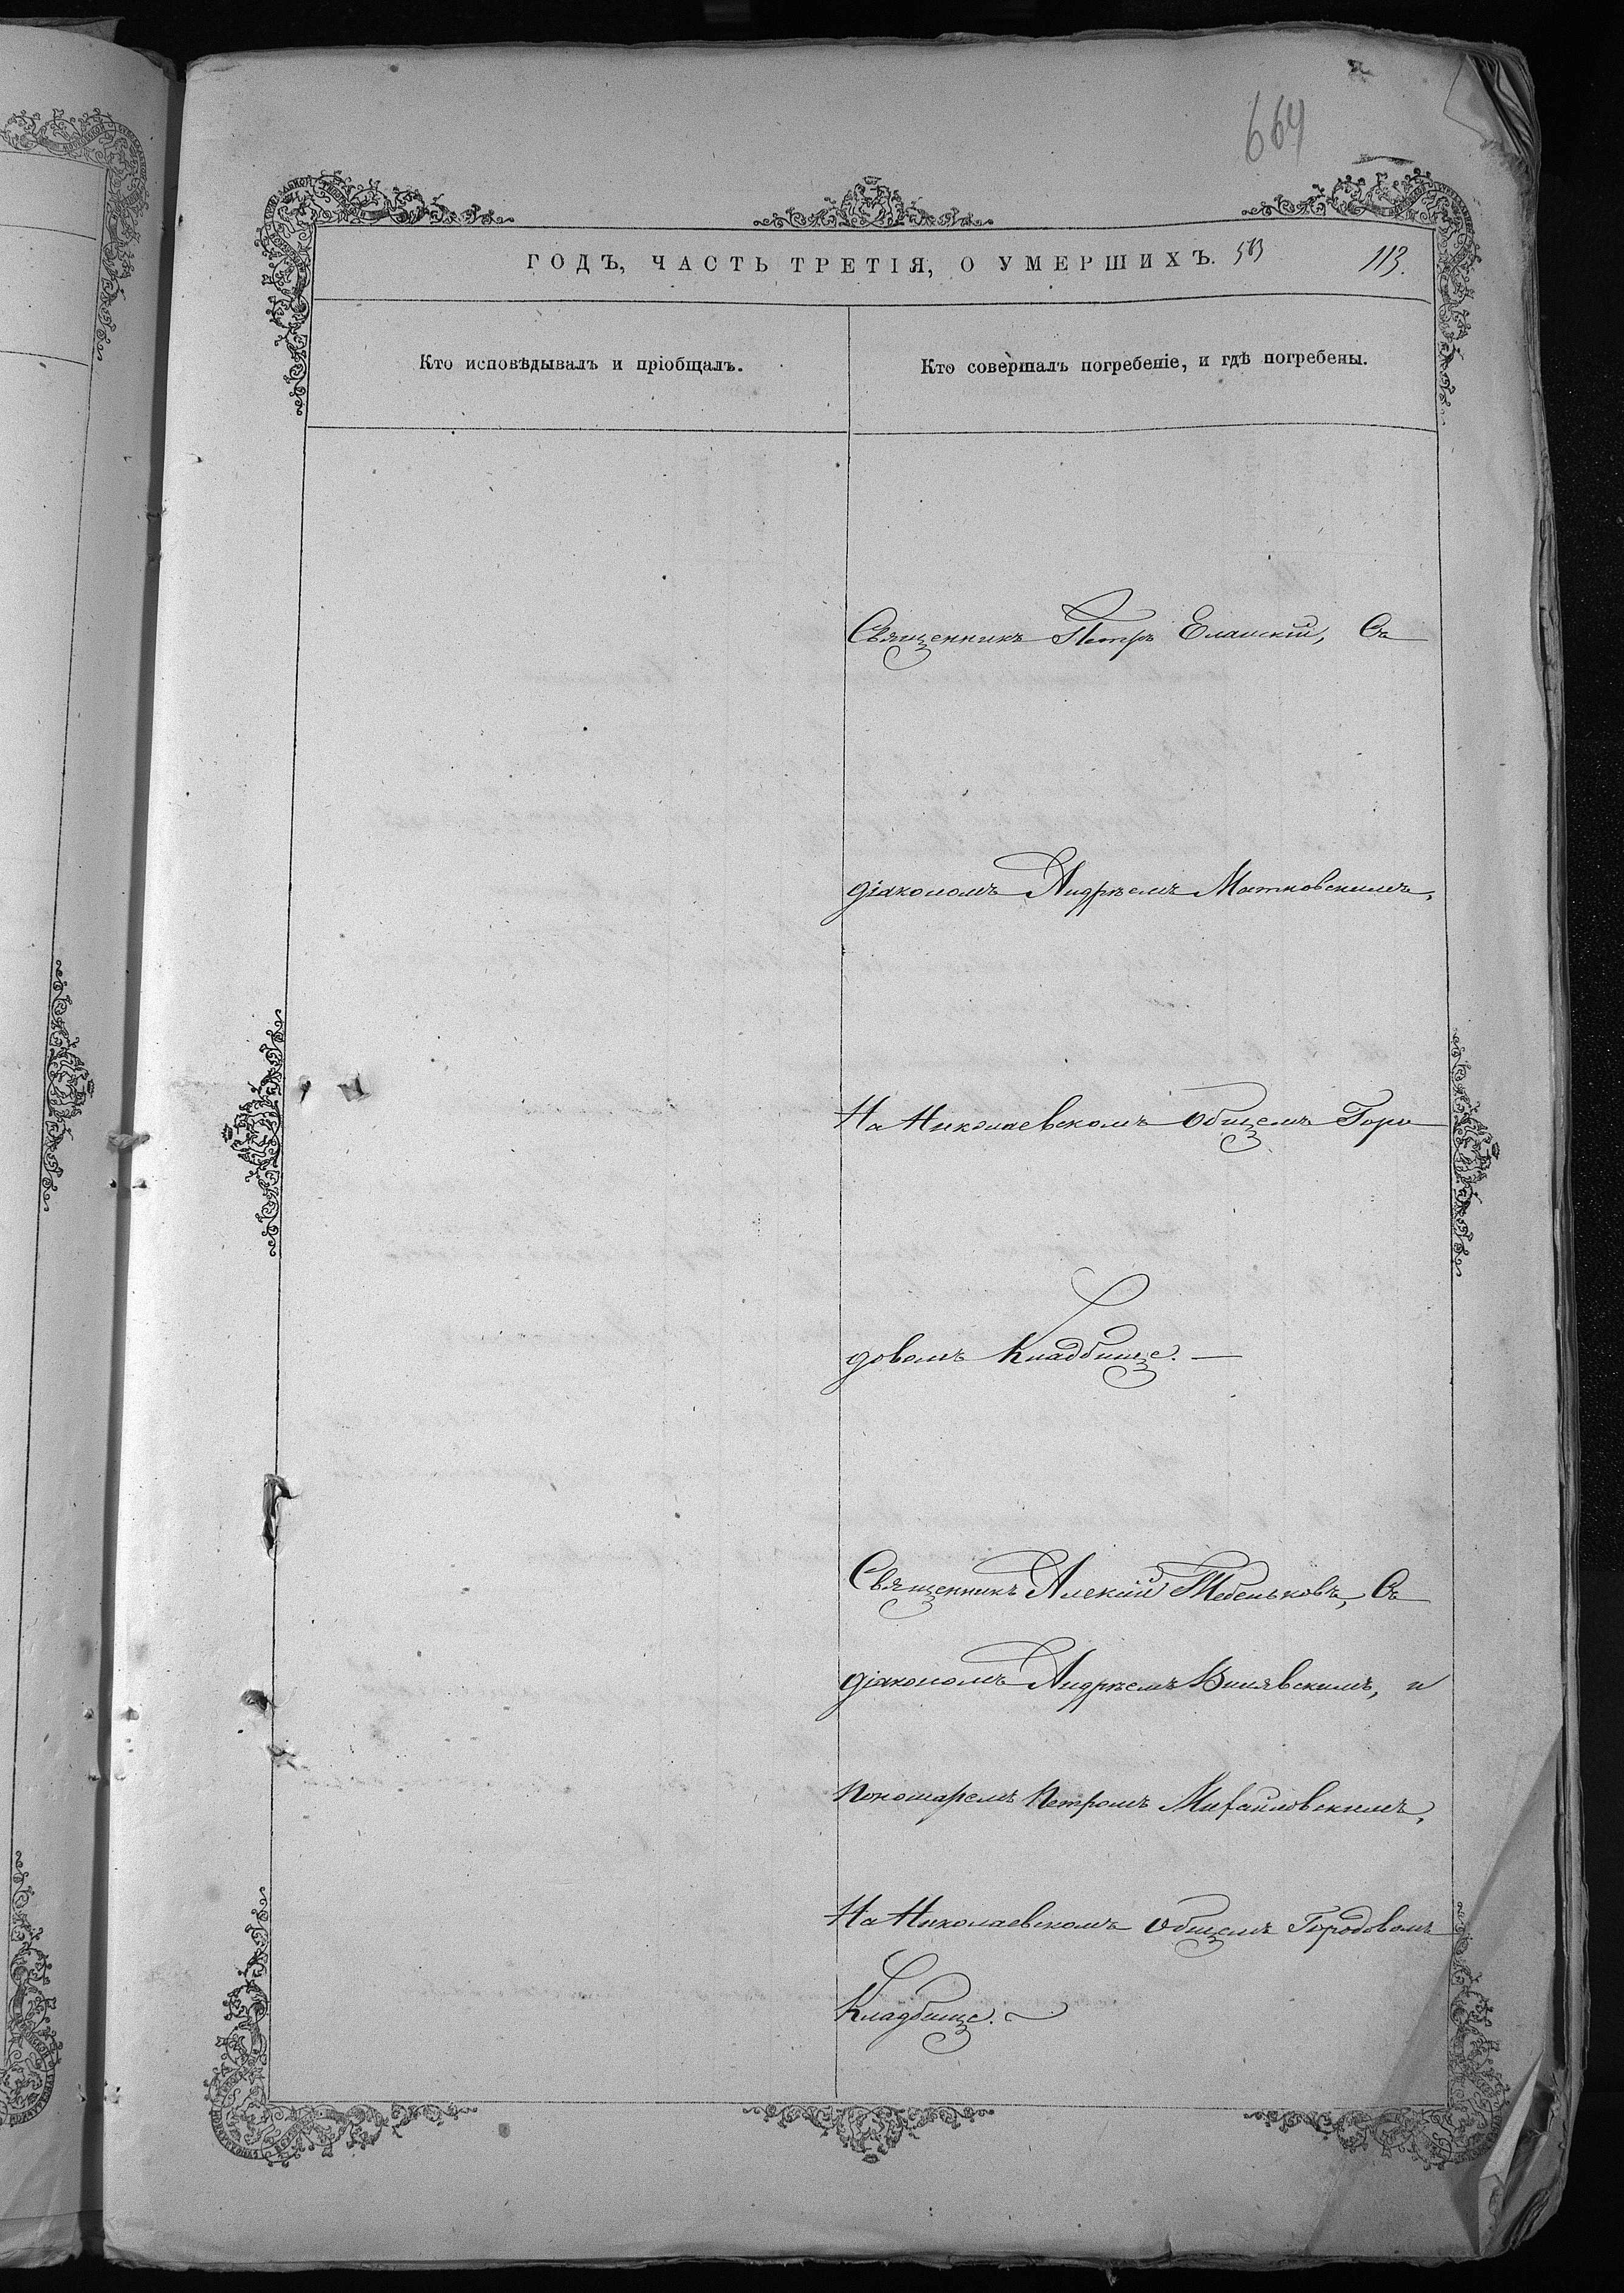 664
ГОДЪ, ЧАСТЬ ТРЕТІЯ, О УМЕРШИХЪ. 113.
Кто исповѣдывалъ и пріобщалъ.
Кто совершалъ погребеніе, и гдѣ погребены.
Священникъ Петръ Еланскій, Съ
діакономъ Андреемъ Матковскимъ,
На Николаевскомъ Общемъ Горо
довомъ Кладбище. —
Священникъ Алексій Тебеньковъ, Съ
діакономъ Андреемъ Винявскимъ, и
Пономаремъ Петромъ Михайловскимъ,
На Николаевскомъ Общемъ Городовомъ
Кладбище. ~